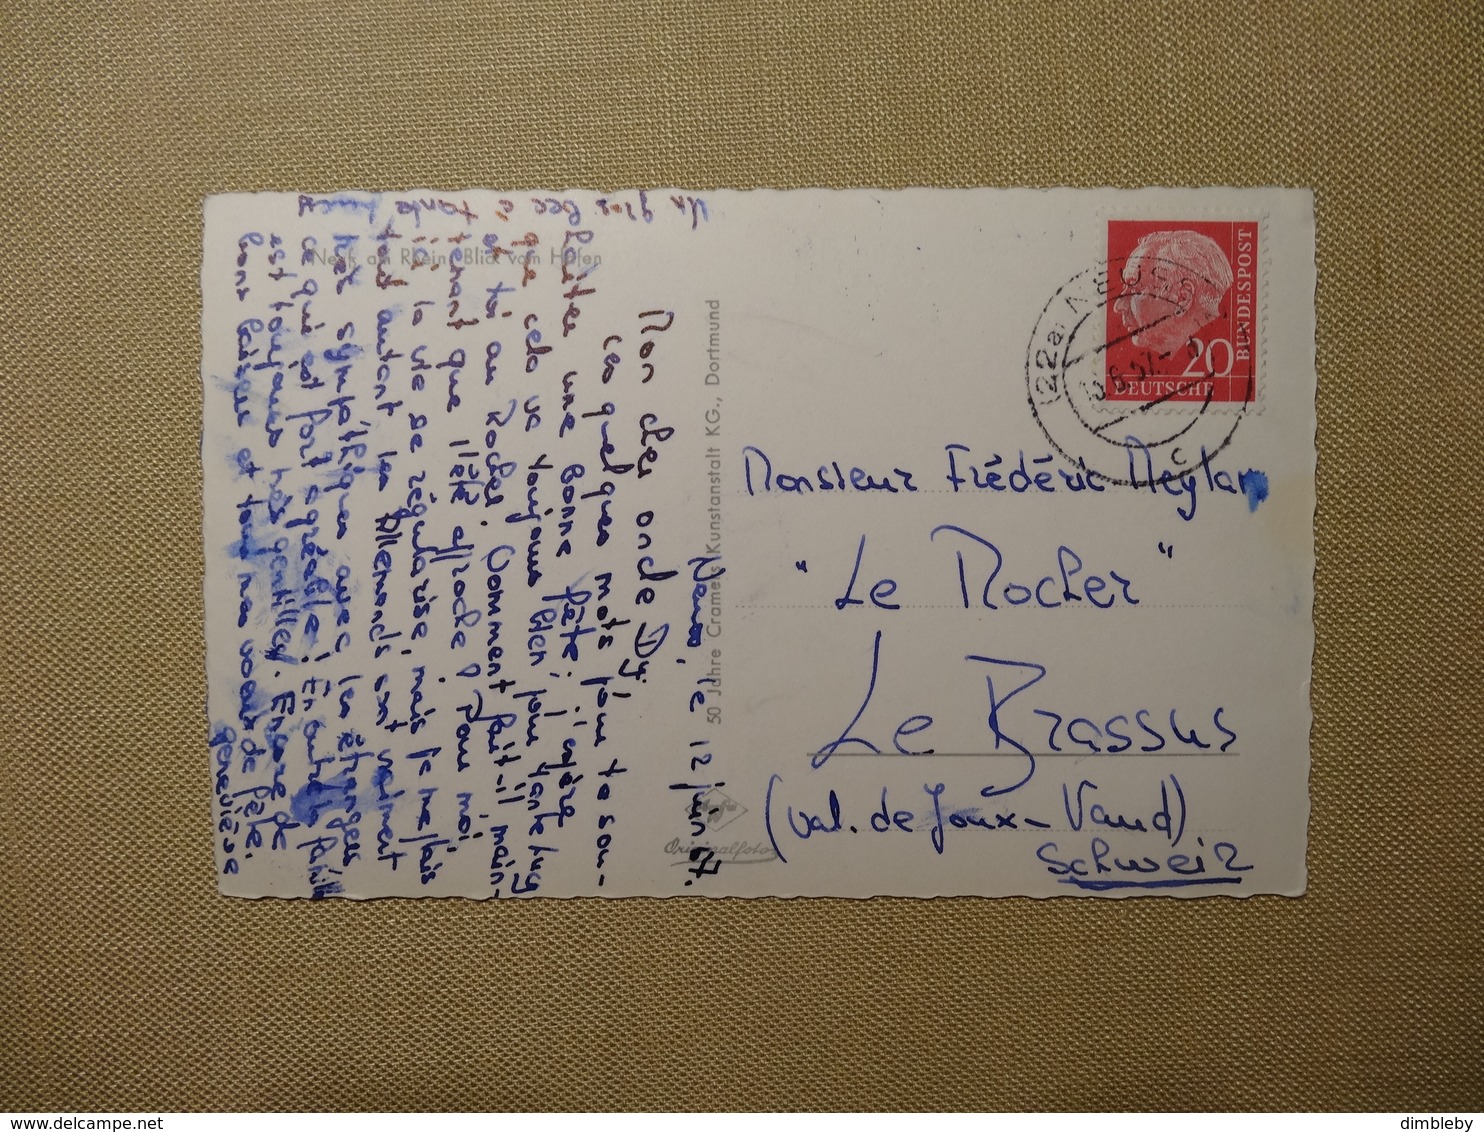 Neuß am Rhein, Blick vom Hafen
Neuss, le 12 juin 57.
Mon cher oncle Dy,
Ces quelques mots pour te sou-
haiter une bonne fête; j'espère
que cela va toujours bien pour tante Lug
et toi au Rocher. Comment fait-il main-
tenant que l'été approche? Pour moi,
ici la vie se régularise, mais je me plais
tout autant. Les Allemands sont vraiment
très sympathiques avec les étrangers
ce qui est fort agréable! En outre la famille
est toujours très gentille. Encore de
bons baisers et tous mes vœux de fête.
Geneviève
Un gros bec à tante
50 Jahre Cramers Kunstanstalt KG., Dortmund
Originalfoto
BUNDESPOST
20
DEUTSCHE
(22a) NEUSS
13.6.57.-
c
Monsieur Frédéric Meylan
"Le Rocher"
Le Brassus
(Val. de Joux – Vaud)
Schweiz
dimbleby